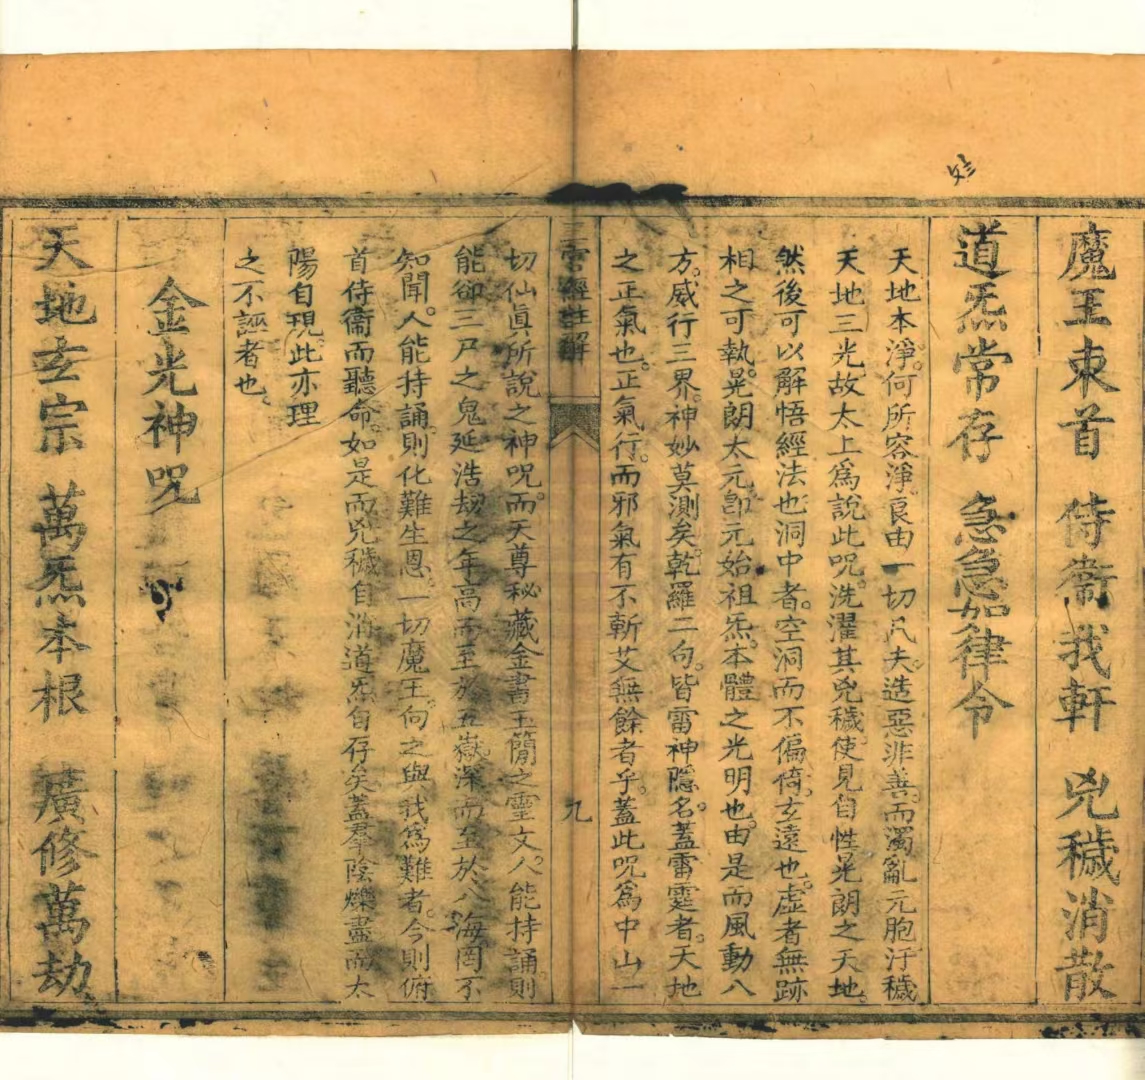 魔王束首 侍衞我軒 兇穢消散
道炁常存 急急如律令
天地本淨。何所容淨。良由一切凡夫。造惡非善。而濁亂元胞。汙穢
天地三光。故太上爲說此咒。洗濯其兇穢。使見自性晃朗之天地。
然後可以解悟經法也。洞中者。空洞而不偏倚。玄遠也。虛者。無跡
相之可執。晃朗太元。卽元始祖炁。本體之光明也。由是而風動八
方。威行三界。神妙莫測矣。乾羅二句。皆雷神隱名。蓋雷霆者。天地
之正氣也。正氣行。而邪氣有不斬艾無餘者乎。蓋此咒爲中山一
三官經註解
九
切仙眞所說之神咒。而天尊秘藏金書玉簡之靈文。人能持誦。則
能卻三尸之鬼。延浩劫之年。高而至於五嶽。深而至於八海。罔不
知聞。人能持誦。則化難生恩。一切魔王。向之與我爲難者。今則俯
首侍衞而聽命。如是而兇穢自消。道炁自存矣。蓋羣陰爍盡。而太
陽自現。此亦理
之不誣者也。
金光神咒
天地玄宗 萬炁本根 廣修萬劫